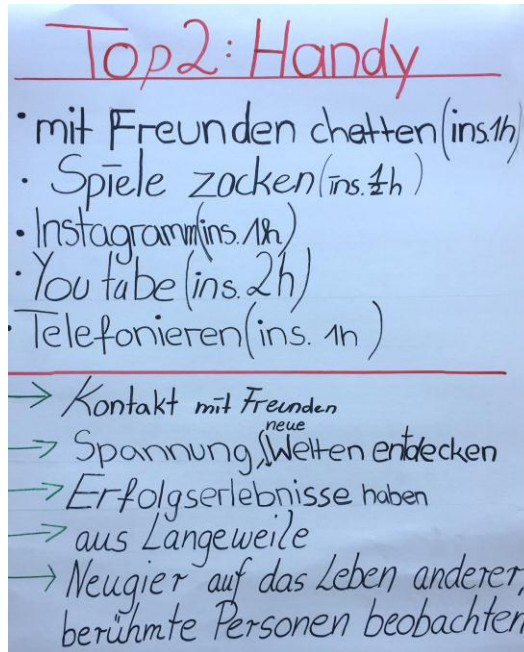 Top2: Handy
• mit Freunden chatten (ins. 1h)
• Spiele zocken (ins. ½h)
• Instagramm (ins. 1h)
• You tube (ins. 2h)
• Telefonieren (ins. 1h)
→ Kontakt mit Freunden
→ Spannung, neue Welten entdecken
→ Erfolgserlebnisse haben
→ aus Langeweile
→ Neugier auf das Leben anderer,
berühmte Personen beobachten